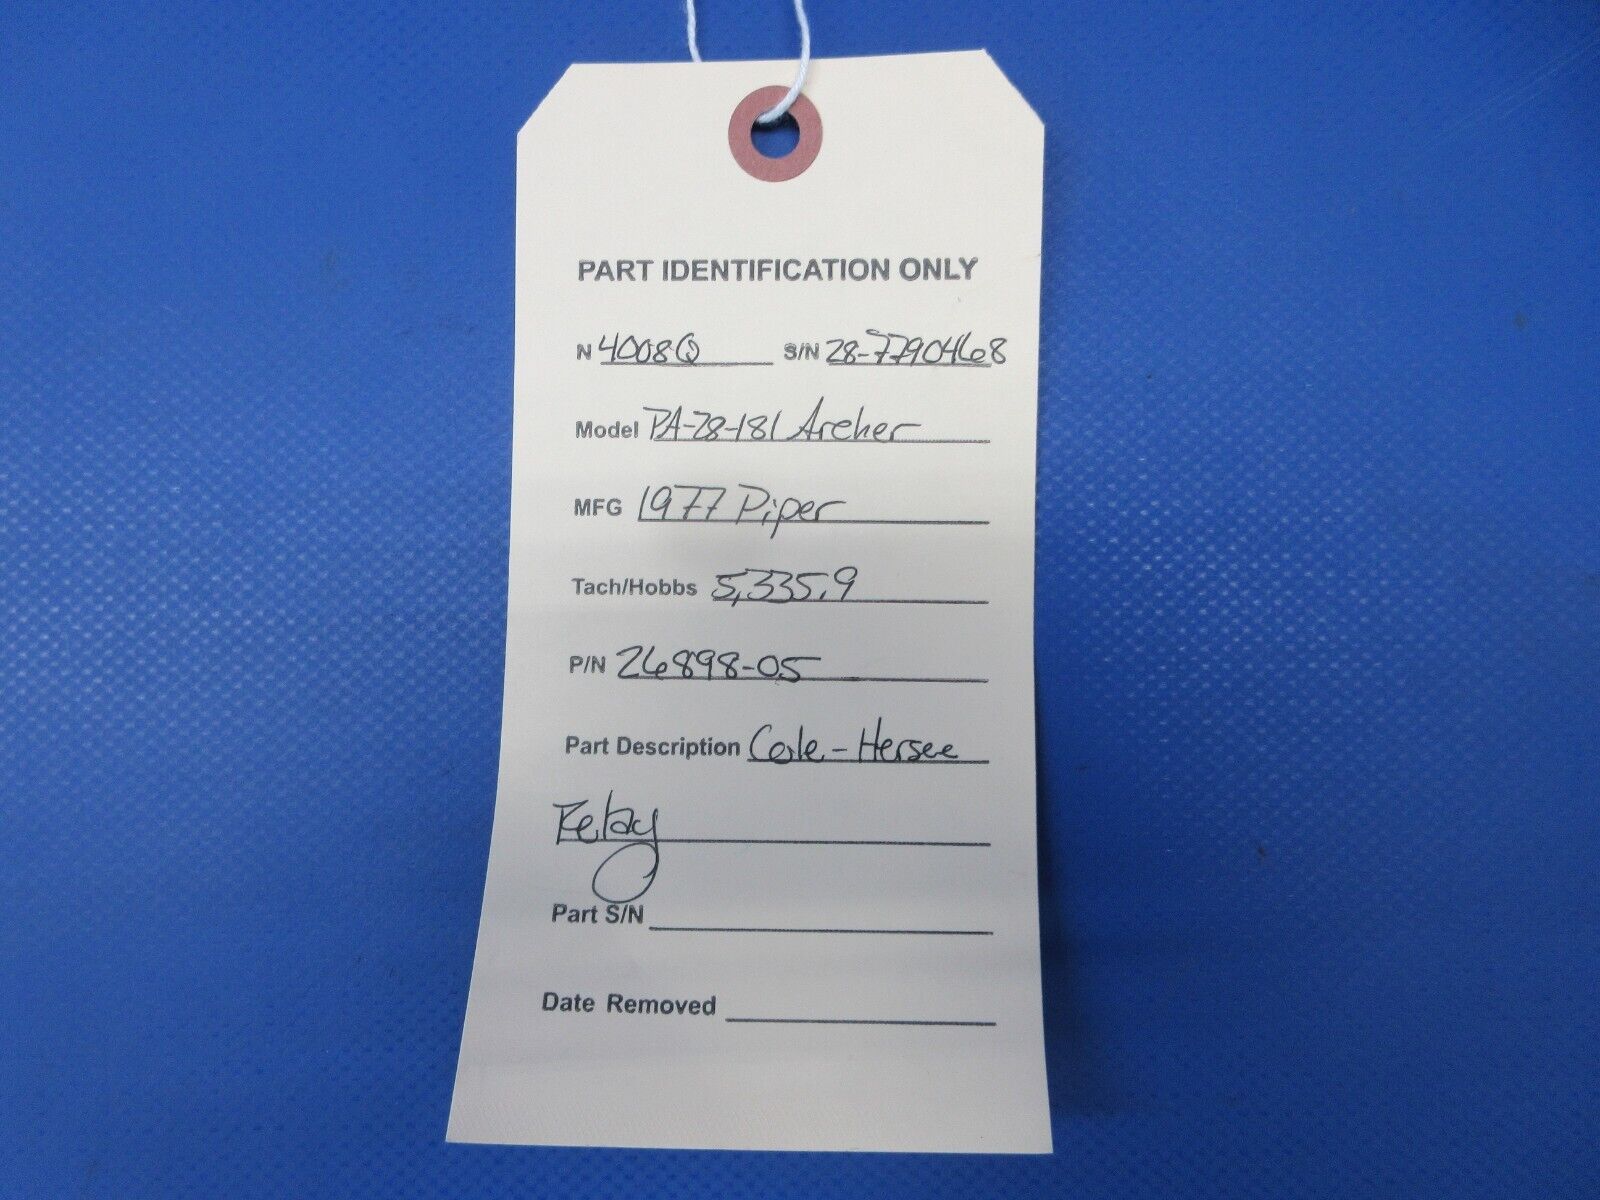 PART IDENTIFICATION ONLY
N 4008Q S/N 28-7790468
Model PA-28-181 Archer
MFG 1977 Piper
Tach/Hobbs 5,335.9
P/N 26898-05
Part Description Cole-Hersee
Relay
Part S/N
Date Removed